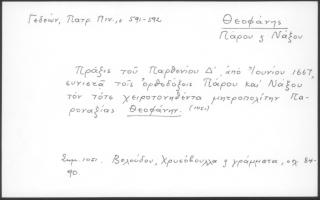 Γεδεών, Πατρ. Πιν., σ 591-592
Θεοφάνης
Πάρου ς Νάξου
Πρᾶξις τοῦ Παρθενίου Δ΄ ἀπὸ Ἰουνίου 1667,
συνιστᾷ τοῖς ὀρθοδόξοις Πάρου καὶ Νάξου
τὸν τότε χειροτονηθέντα μητροπολίτην Πα-
ροναξίας Θεοφάνην.
Σημ. 1051. Βελούδου, Χρυσόβουλλα ς γράμματα, σελ 84-
90.